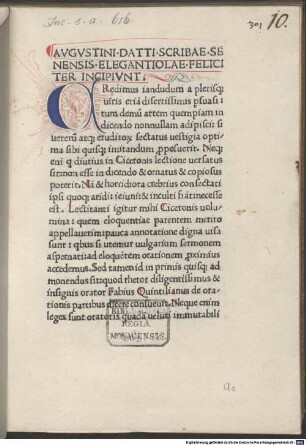 Inc. s. a. 616.
301 10.
AVGVSTINI·DATTI·SCRIBAE·SE
NENSIS·ELEGANTIOLAE·FELICI
TER INCIPIVNT.
CRedimus iandudum a plerisq;
uiris etiã disertissimis psuasi
tum demũ artem quempiam in
dicendo nonnullam adipisci: si
ueterũ atq; eruditoꝝ sectatus uestigia opti
ma sibi quisq; imitandum pposuerit. Neq;
eni q diutius in Ciceronis lectione uersatus
sit: non esse in dicendo &ornatus &copiosus
poterit. Nã &horridiora crebrius consectati
ipsi quoq; aridi & ieiuni & inculti fiãt necesse
est. Lectitanti igitur mihi Ciceronis uolu
mina: quem eloquentiae parentem merito
appellauerim: pauca annotatione digna uisa
sunt: qbus si utemur uulgarium sermonem
aspernati: ad eloquẽtem orationem pximius
accedemus. Sed tamen id in primis quisq; ad
monendus sit: quod rhetor diligentissimus &
insignis orator Fabius Quintilianus de ora
tionis partibus dicere consueuit. Neque enim
leges sunt oratoris quadã ueluti immutabili
REGIA
MONACENSIS.
a2